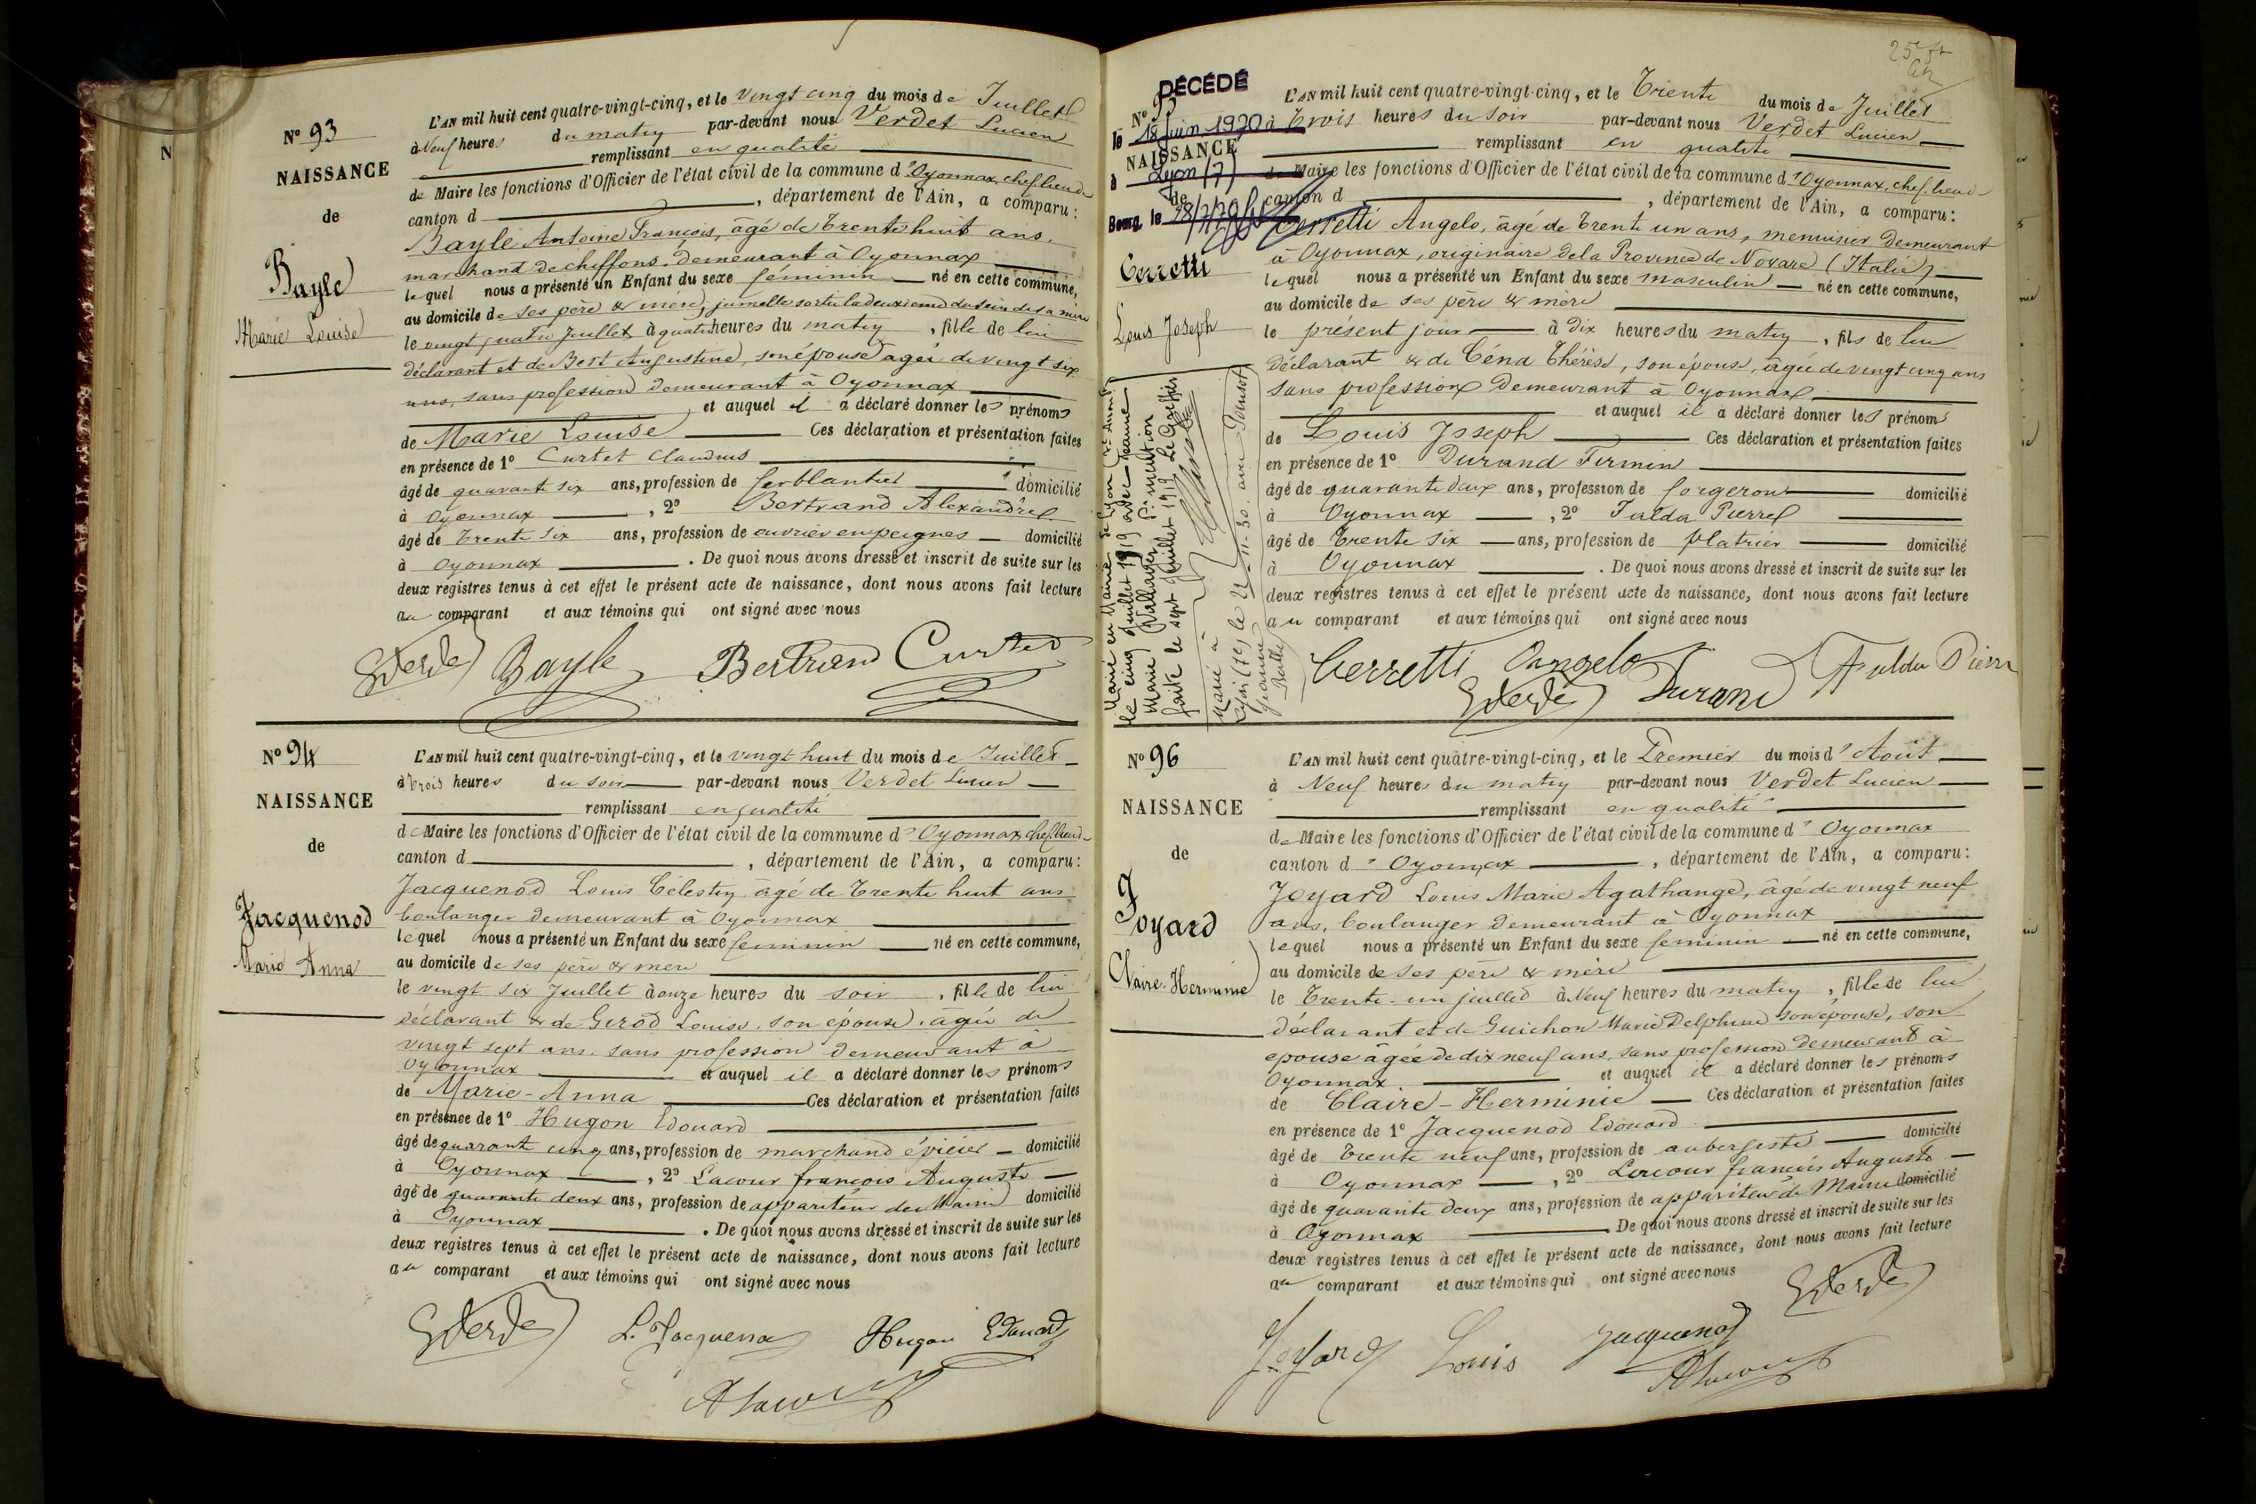 N° 93
NAISSANCE
de
Bayle
Marie Louise
L'AN mil huit cent quatre-vingt-cinq, et le vingt cinq du mois de Juillet
à Neuf heures du matin par-devant nous Verdet Lucien
remplissant en qualité
de Maire les fonctions d'Officier de l'état civil de la commune d'Oyonnax, chef lieu de
canton d , département de l'Ain, a comparu:
Bayle Antoine François, âgé de trente huit ans,
marchand de chiffons, demeurant à Oyonnax
lequel nous a présenté un Enfant du sexe féminin né en cette commune,
au domicile de ses père & mère, jumelle sortie la deuxième du sein de sa mère
le vingt quatre Juillet, à quatre heures du matin, fille de lui
déclarant et de Bert Augustine, son épouse âgée de vingt six
ans, sans profession demeurant à Oyonnax
et auquel il a déclaré donner les prénoms
de Marie Louise Ces déclaration et présentation faites
en présence de 1° Curtet Claudius
âgé de quarante six ans, profession de ferblantier domicilié
à Oyonnax , 2° Bertrand Alexandre
âgé de trente six ans, profession de ouvrier en peignes domicilié
à Oyonnax . De quoi nous avons dressé et inscrit de suite sur les
deux registres tenus à cet effet le présent acte de naissance, dont nous avons fait lecture
au comparant et aux témoins qui ont signé avec nous
Verdet Bayle Bertrand Curtet
N° 94
NAISSANCE
de
Jacquenod
Marie Anna
L'AN mil huit cent quatre-vingt-cinq, et le vingt huit du mois de Juillet
à trois heures du soir par-devant nous Verdet Lucien
remplissant en qualité
de Maire les fonctions d'Officier de l'état civil de la commune d'Oyonnax chef lieu de
canton d , département de l'Ain, a comparu:
Jacquenod Louis Célestin âgé de trente huit ans
boulanger demeurant à Oyonnax
lequel nous a présenté un Enfant du sexe féminin né en cette commune,
au domicile de ses père & mère
le vingt six Juillet à onze heures du soir, fille de lui
déclarant & de Gerod Louise, son épouse, âgée de
vingt sept ans, sans profession demeurant à
Oyonnax et auquel il a déclaré donner les prénoms
de Marie-Anna Ces déclaration et présentation faites
en présence de 1° Hugon Edouard
âgé de quarante cinq ans, profession de marchand épicier domicilié
à Oyonnax , 2° Lacour françois Auguste
âgé de quarante deux ans, profession de appariteur de Mairie domicilié
à Oyonnax . De quoi nous avons dressé et inscrit de suite sur les
deux registres tenus à cet effet le présent acte de naissance, dont nous avons fait lecture
au comparant et aux témoins qui ont signé avec nous
Verdet L. Jacquenod Hugon Edouard
ALacour
25
DÉCÉDÉ
N° 95
le 18 juin 1970
NAISSANCE
à Lyon (7)
de
Bourg, le
Cerretti
Louis Joseph
Marié en Mairie de Lyon
le cinq Juillet 1919 avec Jeanne
Marie
P. mention
faite le sept Juillet 1919 Le Greffier
Marié à
Lyon le 22-11-30 avec
L'AN mil huit cent quatre-vingt-cinq, et le Trente du mois de Juillet
à trois heures du soir par-devant nous Verdet Lucien
remplissant en qualité
de Maire les fonctions d'Officier de l'état civil de la commune d'Oyonnax, chef lieu de
canton d , département de l'Ain, a comparu:
Cerretti Angelo, âgé de trente un ans, menuisier demeurant
à Oyonnax, originaire de la Province de Novare (Italie)
lequel nous a présenté un Enfant du sexe masculin né en cette commune,
au domicile de ses père & mère
le présent jour à dix heures du matin, fils de lui
déclarant & de Céna Thérèse, son épouse, âgée de vingt cinq ans
sans profession demeurant à Oyonnax
et auquel il a déclaré donner les prénoms
de Louis Joseph Ces déclaration et présentation faites
en présence de 1° Durand Firmin
âgé de quarante deux ans, profession de forgeron domicilié
à Oyonnax , 2° Falda Pierre
âgé de trente six ans, profession de platrier domicilié
à Oyonnax . De quoi nous avons dressé et inscrit de suite sur les
deux registres tenus à cet effet le présent acte de naissance, dont nous avons fait lecture
au comparant et aux témoins qui ont signé avec nous
Cerretti Angelo Verdet Durand Falda Pierre
N° 96
NAISSANCE
de
Joyard
Claire-Herminie
L'AN mil huit cent quatre-vingt-cinq, et le Premier du mois d'Août
à Neuf heures du matin par-devant nous Verdet Lucien
remplissant en qualité
de Maire les fonctions d'Officier de l'état civil de la commune d'Oyonnax
canton d'Oyonnax , département de l'Ain, a comparu:
Joyard Louis Marie Agathange, âgé de vingt neuf
ans, boulanger demeurant à Oyonnax
lequel nous a présenté un Enfant du sexe féminin né en cette commune,
au domicile de ses père & mère
le trente-un juillet à Neuf heures du matin, fille de lui
déclarant et de Guichon Marie Delphine son épouse, son
épouse âgée de dix neuf ans, sans profession demeurant à
Oyonnax et auquel il a déclaré donner les prénoms
de Claire-Herminie Ces déclaration et présentation faites
en présence de 1° Jacquenod Edouard
âgé de trente neuf ans, profession de aubergiste domicilié
à Oyonnax , 2° Lacour françois Auguste
âgé de quarante deux ans, profession de appariteur de Mairie domicilié
à Oyonnax De quoi nous avons dressé et inscrit de suite sur les
deux registres tenus à cet effet le présent acte de naissance, dont nous avons fait lecture
au comparant et aux témoins qui ont signé avec nous
Verdet
Joyard Louis Jacquenod
ALacour